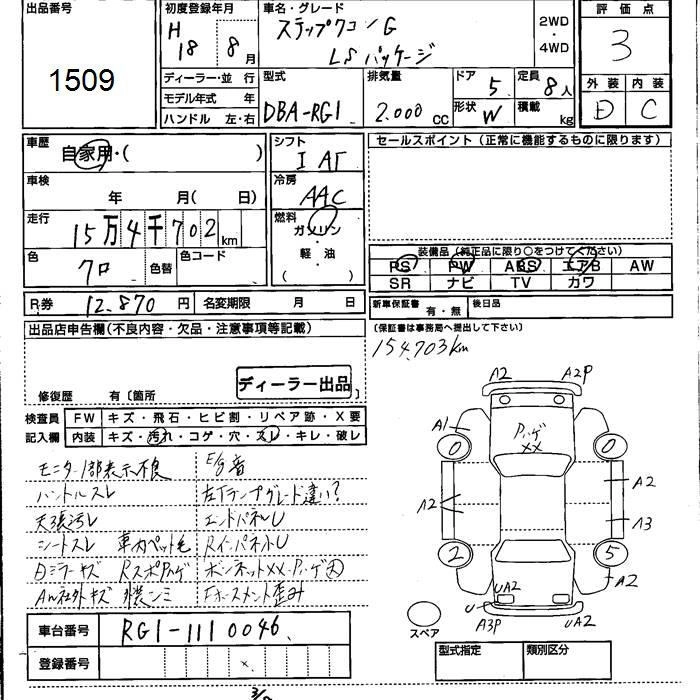 出品番号
1509
初度登録年月
H 18 8月
ディーラー・並行
モデル年式 年
ハンドル 左・右
車名・グレード
ステップワゴンG
LSパッケージ
2WD・4WD
型式
DBA-RG1
排気量
2.000cc
ドア 5
形状 W
定員 8人
積載 kg
評価点
3
外装 内装
D C
車歴
自家用・( )
車検
年 月( 日)
走行
15万4千702km
色
クロ
色替
色コード
シフト
I AT
冷房
AAC
燃料
ガソリン
・
軽・油
( )
セールスポイント(正常に機能するものに限ります)
装備品(純正品に限り○をつけてください)
PS PW ABS エアB AW
SR ナビ TV カワ
R券 12.870円 名変期限 月 日
新車保証書 有・無 後日品
(保証書は事務局へ提出して下さい)
154,703km
出品店申告欄(不良内容・欠品・注意事項等記載)
ディーラー出品
修復歴 有〔箇所 〕
検査員 FW キズ・飛石・ヒビ割・リペア跡・X要
記入欄 内装 キズ・汚れ・コゲ・穴・スレ・キレ・破レ
モニター1部表示不良 E/g音
ハンドルスレ 左下ランプグレード違い?
天張汚レ エンドパネルU
シートスレ 車内ペット毛 RインパネルU
日ミラーキズ RスポPハゲ ボンネットXX.Pハゲ大
AW社外キズ Fホースメント歪み
車台番号 RG1-1110046
登録番号
A2 A2P
A1
Pハゲ
XX
0 0
A2
A2
A3
2 5
A2
UA2
U
A3P
UA2
スペア
型式指定 類別区分